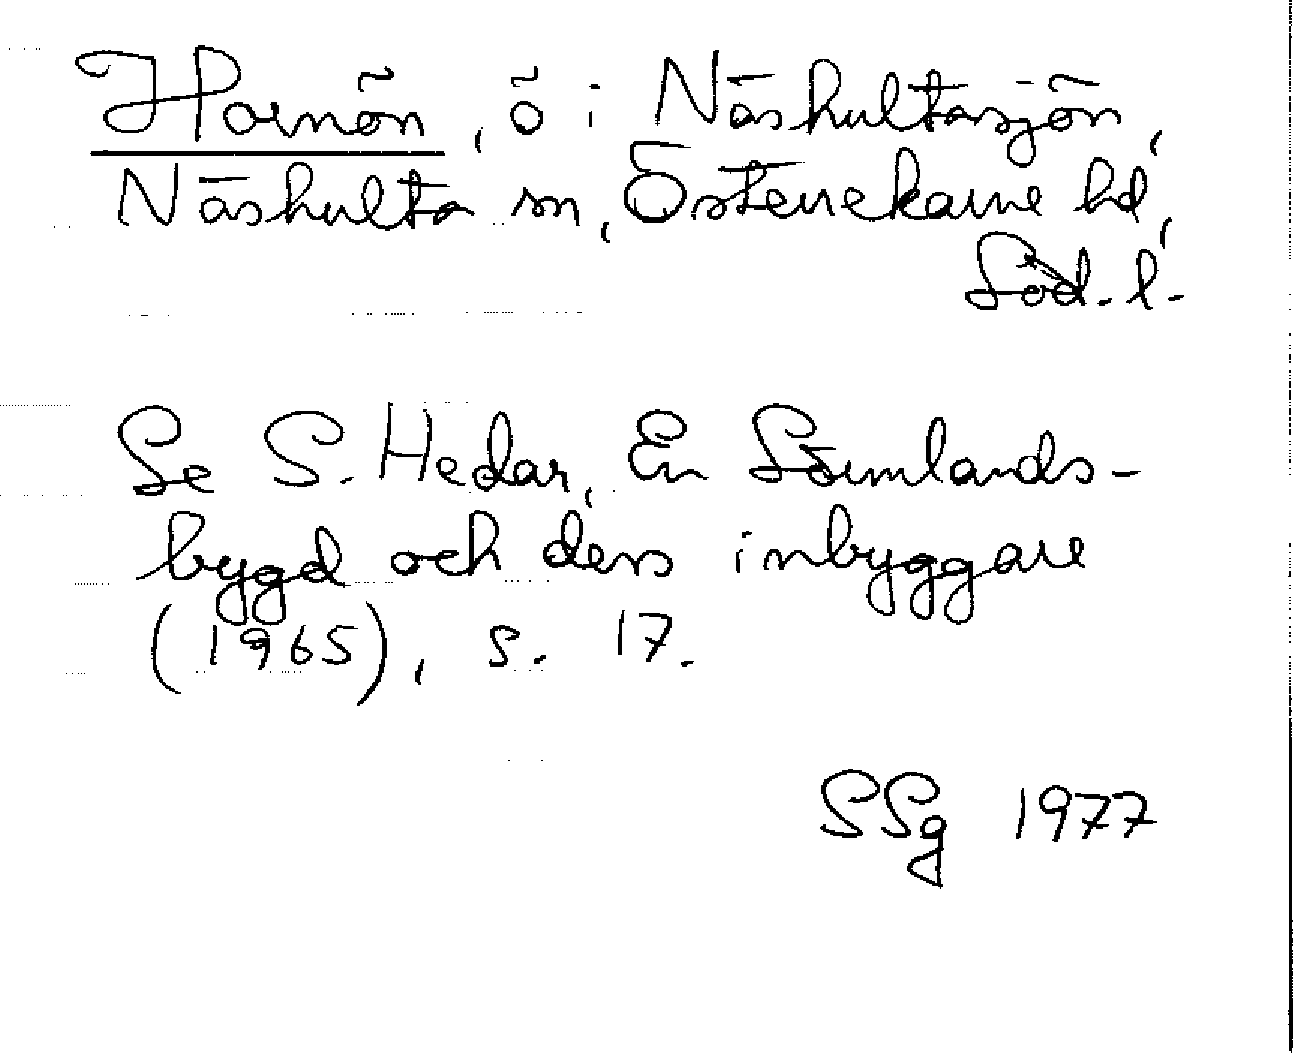 Hornön, ö i Näshultasjön,
Näshulta sn, Österrekarne hd,
Söd. l.
Se S. Hedar, En Sörmlands-
bygd och dess inbyggare
(1965), s. 17.
SSg 1977